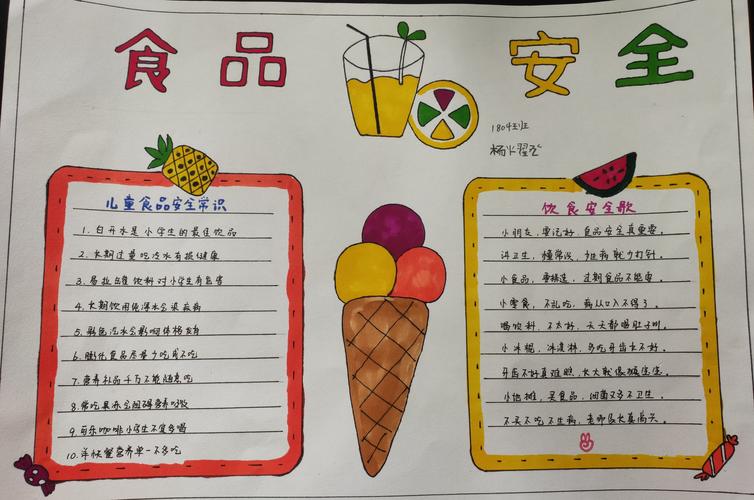 食品安全
1804班
杨
儿童食品安全常识
1. 白开水是小学生的最佳饮品
2. 长期过量吃冷水有损健康
3. 易拉罐饮料对小学生有危害
4. 长期饮用纯净水会染疾病
5. 彩色汽水会影响体格发育
6. 膨化食品尽量少吃或不吃
7. 营养补品千万不能随意吃
8. 常吃果冻会阻碍营养吸收
9. 可乐咖啡小学生不宜多喝
10. 洋快餐营养单一不多吃
饮食安全歌
小朋友，要记好，食品安全真重要。
讲卫生，懂常识，
小食品，要精选，过期食品不能要。
小零食，不乱吃，病从口入不得了。
喝饮料，不太好，天天都喝肚子叫。
小冰棍，冰淇淋，多吃开齿太不好。
开齿不好真难胜，
小摊，是食品，细菌又多不卫生。
不买不吃不生病，老师家长真高兴。